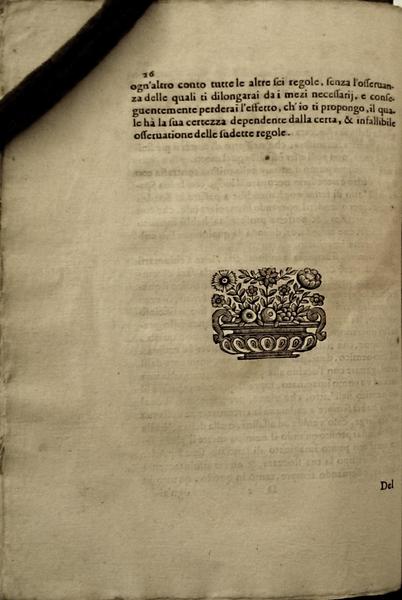 26
ogn'altro conto tutte le altre sei regole, senza l'osseruan-
za delle quali ti dilongarai da i mezi necessarij, e conse-
guentemente perderai l'effetto, ch'io ti propongo, il qua-
le hà la sua certezza dependente dalla certa, & infallibile
osseruatione delle sudette regole.
Del